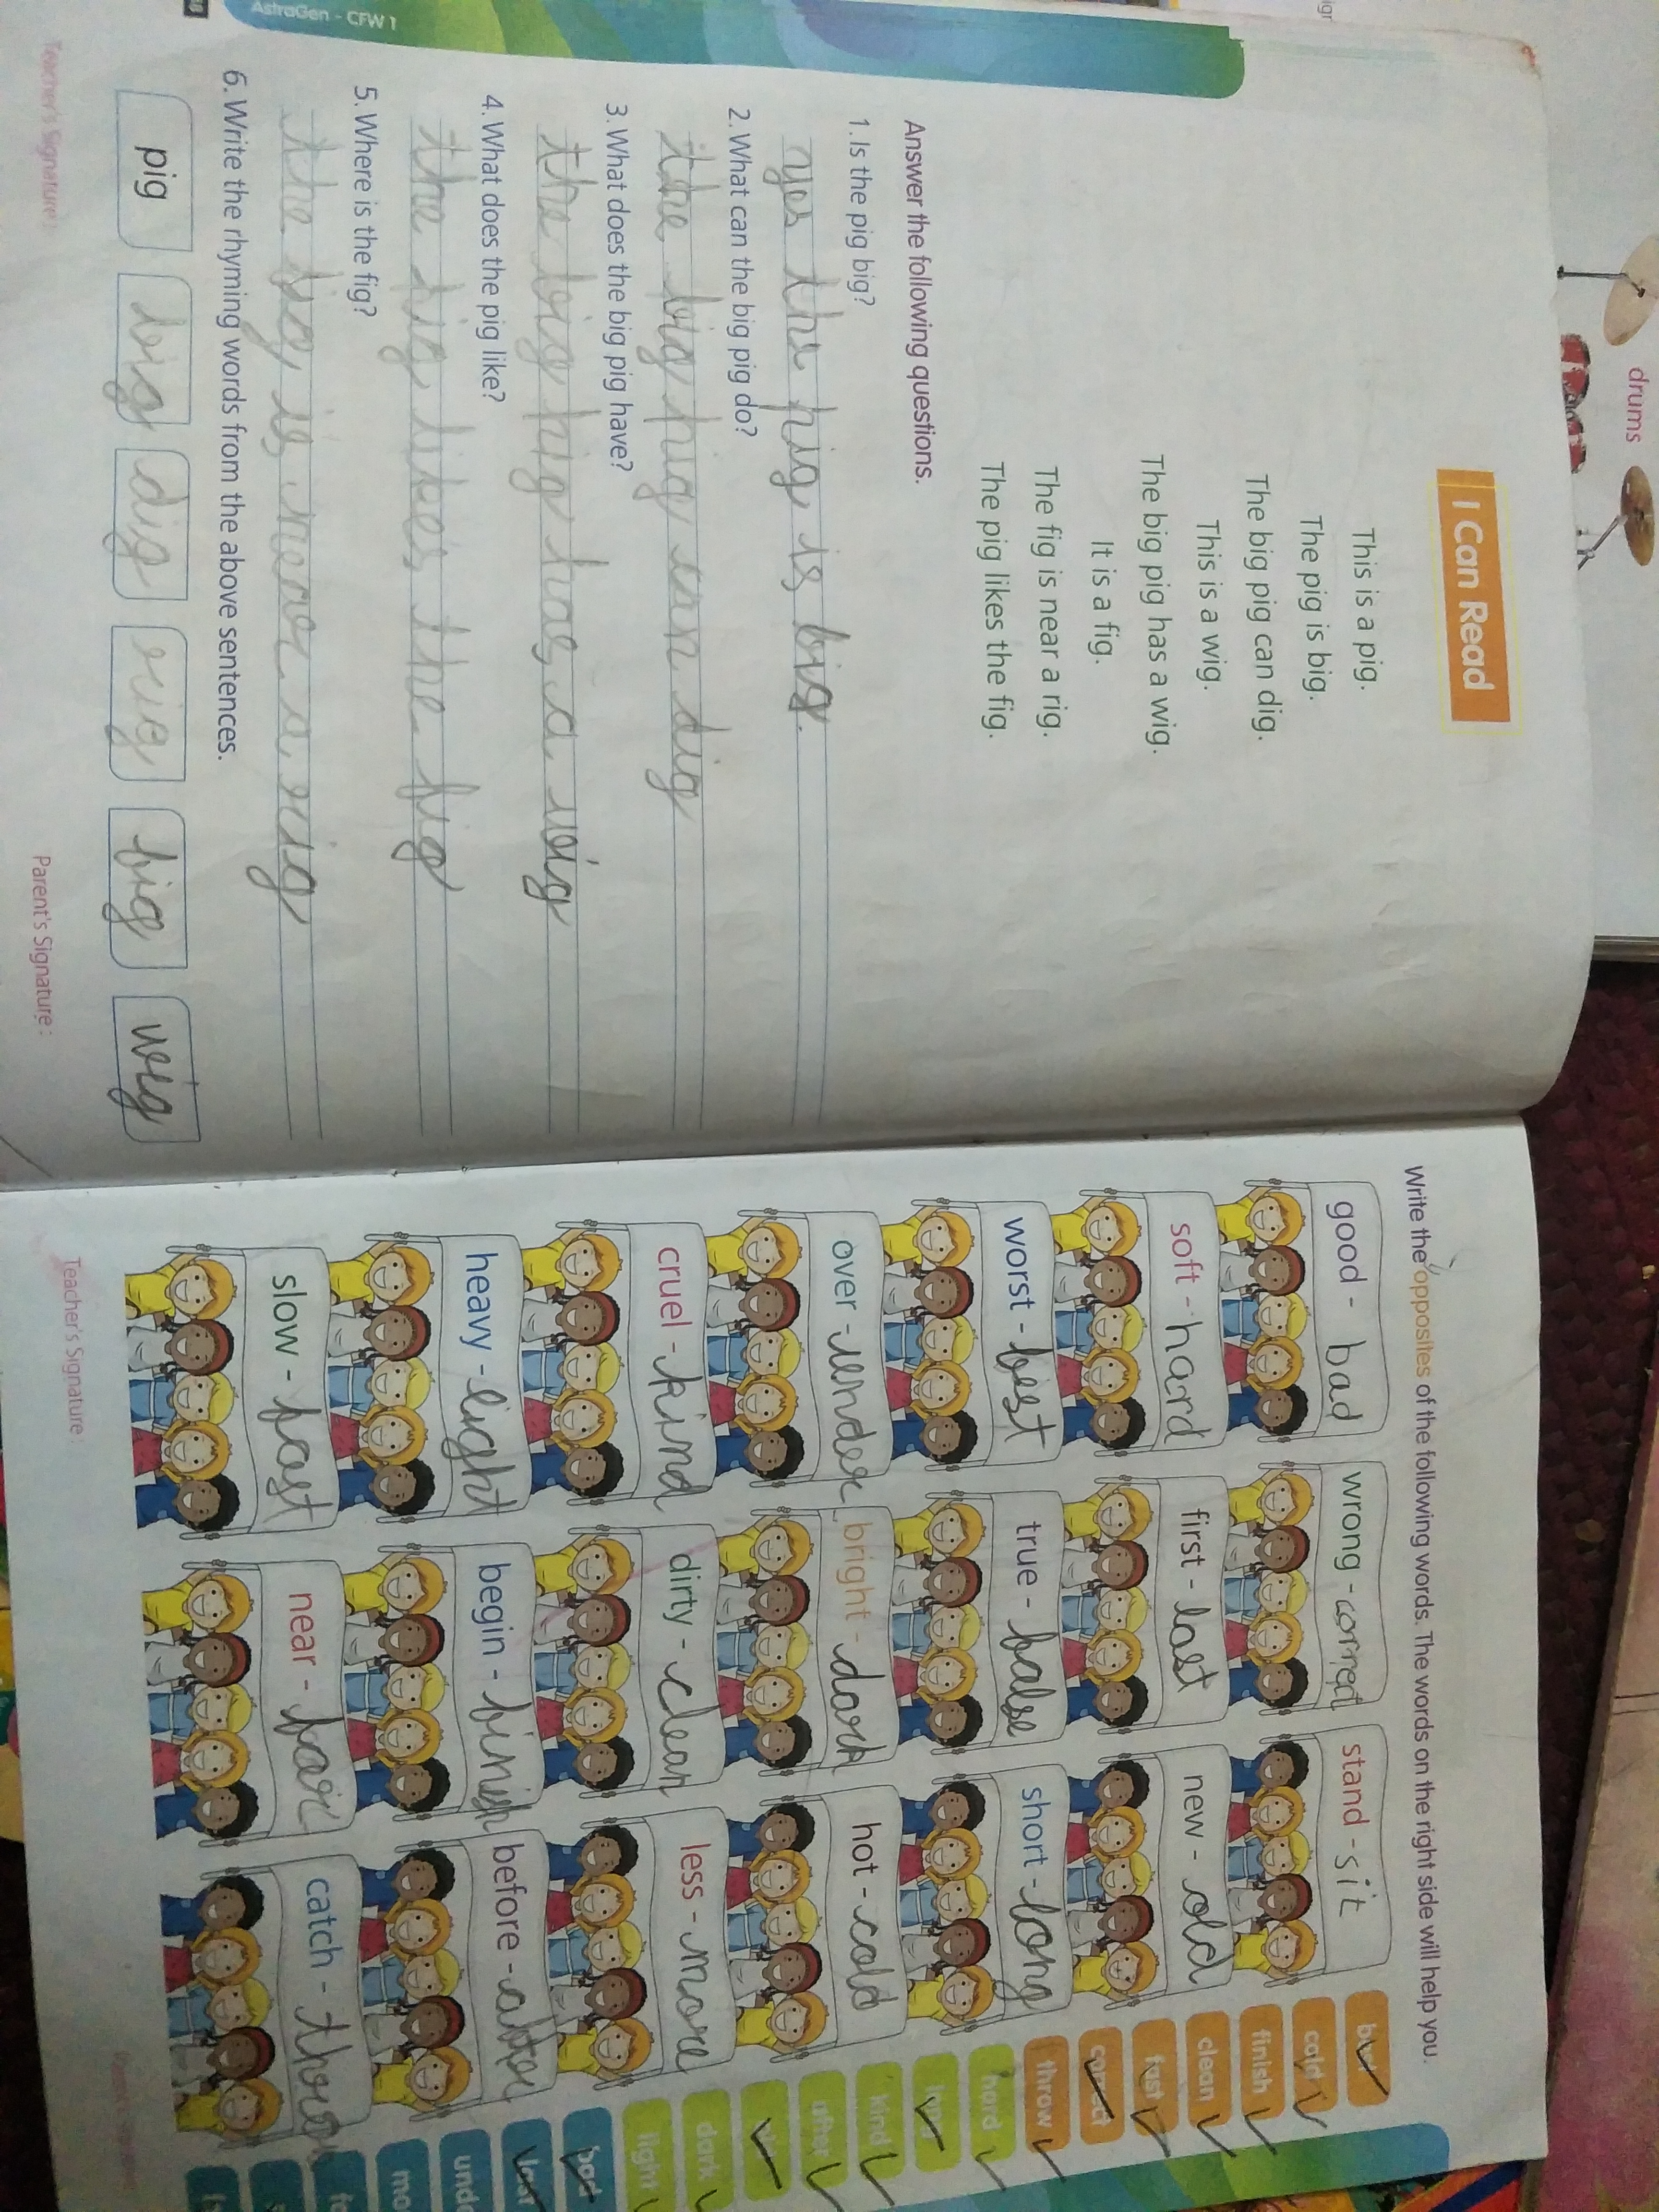 drums
I Can Read
This is a pig.
The pig is big.
The big pig can dig.
This is a wig.
The big pig has a wig.
It is a fig.
The fig is near a rig.
The pig likes the fig.
Answer the following questions.
1. Is the pig big?
yes the pig is big.
2. What can the big pig do?
the big pig can dig
3. What does the big pig have?
the big pig has a wig
4. What does the pig like?
the pig likes the fig
5. Where is the fig?
the fig is near a rig
6. Write the rhyming words from the above sentences.
pig big dig rig fig wig
Teacher's Signature:
Parent's Signature:
AstraGen - CFW 1
Write the opposites of the following words. The words on the right side will help you.
good - bad wrong - correct stand - sit
soft - hard first - last new - old
worst - best true - false short - long
over - under bright - dark hot - cold
cruel - kind dirty - clean less - more
heavy - light begin - finish before - after
slow - fast near - far catch - throw
cold
finish
clean
fast
correct
throw
hard
kind
after
dark
light
bad
Teacher's Signature: